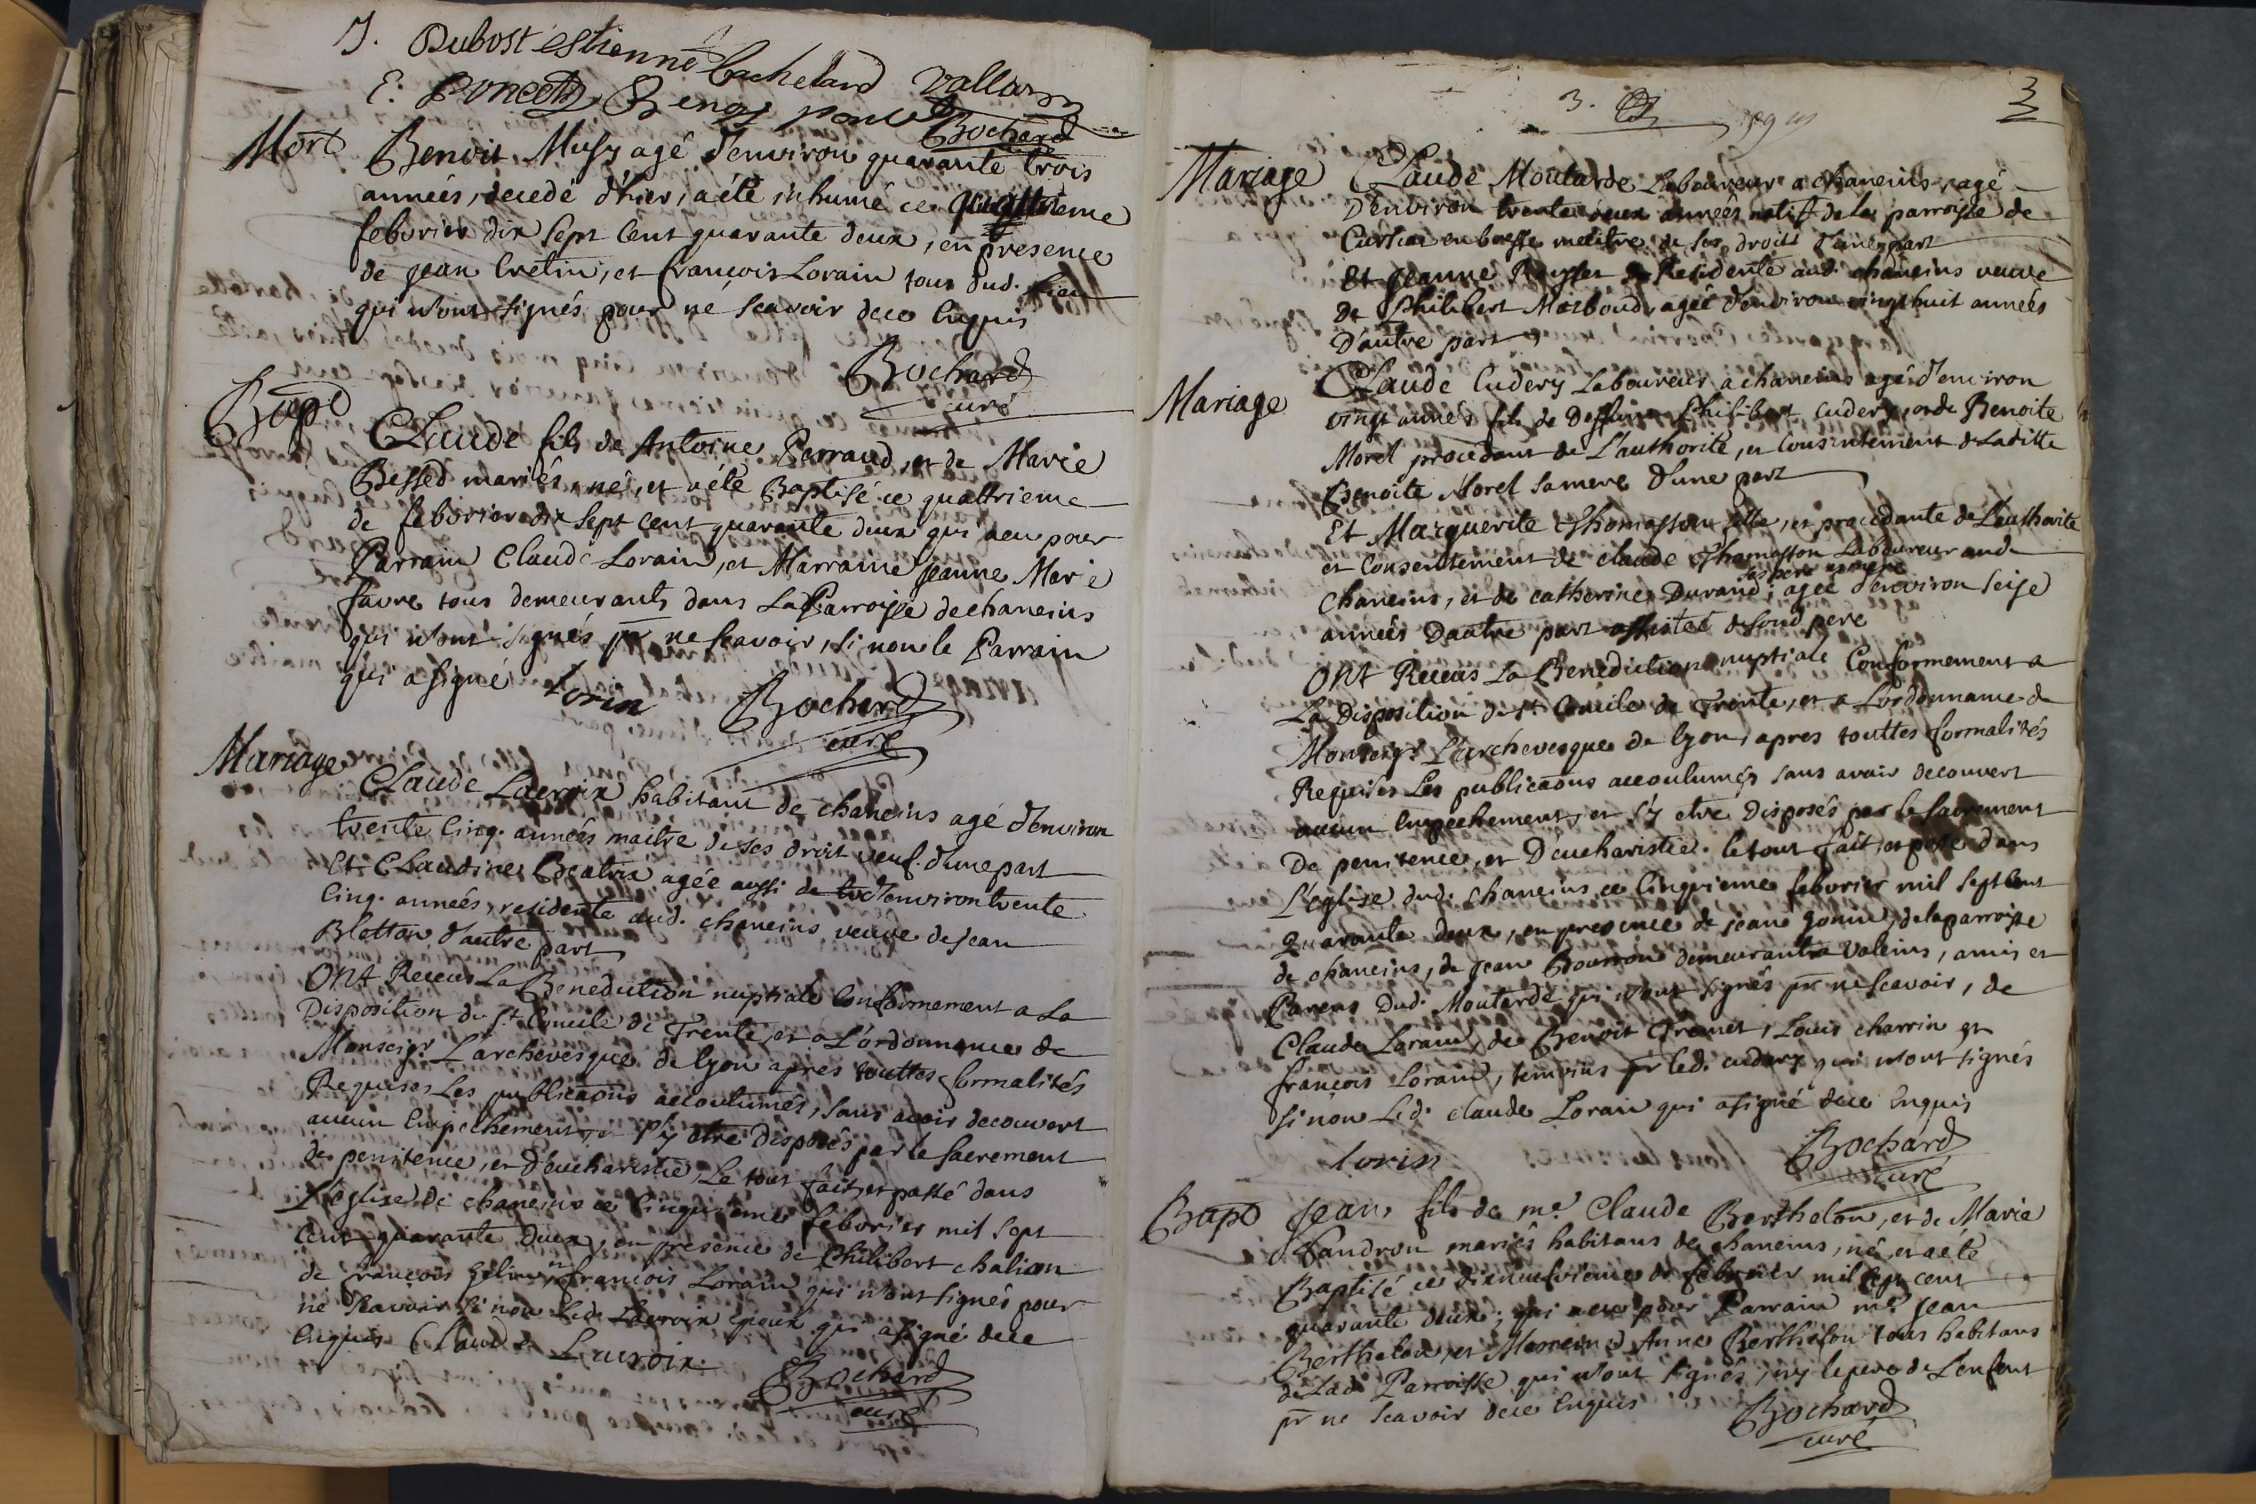 J. Dubost estienne Bachelard Vallan
E: Poncet Benoy poncet
Bochard
Mort Benoit Musy agé d'environ quarante trois
années, decedé d'hier, a été inhumé ce
febvrier dix sept cent quarante deux, en presence
de jean Cretin, et françois Lorain tous dud. lieu
qui n'ont signés pour ne scavoir dece Enquis
Bochard
curé
Bapt
Claude fils de Antoine Perraud, et de Marie
Bessed mariés, né, et a été Baptisé ce quattrieme
de febvrier dix sept cent quarante deux qui a eu pour
Parrain Claude Lorain, et Marraine jeanne Marie
favre tous demeurants dans La Parroisse de chaneins
qui n'ont signés pr ne scavoir, si non le Parrain
qui a signé lorin Bochard
curé
Mariage
Claude Lacroix habitant de chaneins agé d'environ
trente Cinq. années maitre de ses droit veuf. d'une part
Et Claudine Beatrix agée aussi d'environ trente
Cinq. années, residente aud. chaneins veuve de jean
Bletton d'autre part
Ont Receus La Benediction nuptiale Conformement a La
Disposition du st Concile de Trente, et a L'ordonnance de
Monseigr L'archevesque de lyon apres touttes formalités
Requises Les publicaons accoutumées, sans avoir decouvert
aucun Empechement, et s'y etre Disposés par le sacrement
de penitence, et d'eucharistie, Le tout fait et passé dans
L'eglise de chaneins ce Cinquieme febvrier mil sept
Cent quarante Deux, en presence de Philibert chalion
de françois Gelin, françois Lorain qui n'ont signés pour
ne scavoir si non Led. Lacroix Epoux qui a signé dece
Enquis Claude Lacroix
Bochard
curé
3.
3
Mariage Claude Moutarde Laboureur a chaneins, agé
D'environ trente deux années natif de la parroisse de
Curtias en bresse maitre de ses droits d'une part
Et jeanne Residente aud. chaneins veuve
de Philibert Marboud, agée d'environ vingt huit années
D'autre part,
Mariage Claude Cudery Laboureur a chaneins agé d'environ
vingt années fils de Deffunt Philibert Cudery, et de Benoite
Morel procedant de L'authorité, et Consentement de Laditte
Benoite Morel sa mere d'une part
Et Marguerite Thomasson fille, et procedante de L'authorité
et Consentement de claude Thomasson Laboureur aud.
chaneins, et de catherine Durand, ses pere et mere agée d'environ seise
années D'autre part assistée de sond. pere
Ont Receus La Benediction nuptiale Conformement a
La Disposition du st. Concile de Trente, et a L'ordonnance de
Monseigr L'archevesque de lyon, apres touttes formalités
Requises Les publicaons accoutumés sans avoir decouvert
aucun Empechement, et s'y etre Disposés par le sacrement
De penitence, et D'eucharistie. le tout fait, et passé dans
L'eglise dud. chaneins ce Cinquieme febvrier mil sept Cent
Quarante deux, en presence de jean Gonin, de la parroisse
de chaneins, de jean Bourron demeurant a Valeins, amis et
Parens Dud. Moutarde qui n'ont signés pr ne scavoir, de
Claude Lorain, de Benoit Tremet, Louis charrin et
françois Lorain, temoins pr led. cudery qui n'ont signés
si non Led. claude Lorain qui a signé dece Enquis
lorin
Bochard
curé
Bapt Jean, fils de me. Claude Berthelon, et de Marie
Landron mariés habitans de chaneins, né, et a été
Baptisé ce dixneufvieme de febvrier mil sept cent
quarante deux; qui a eu pour Parrain me. jean
Berthelon, et Marraine Anne Berthelon tous habitans
de Lad. Parroisse qui n'ont signés, ny le pere de L'enfant
pr ne scavoir dece Enquis
Bochard
curé